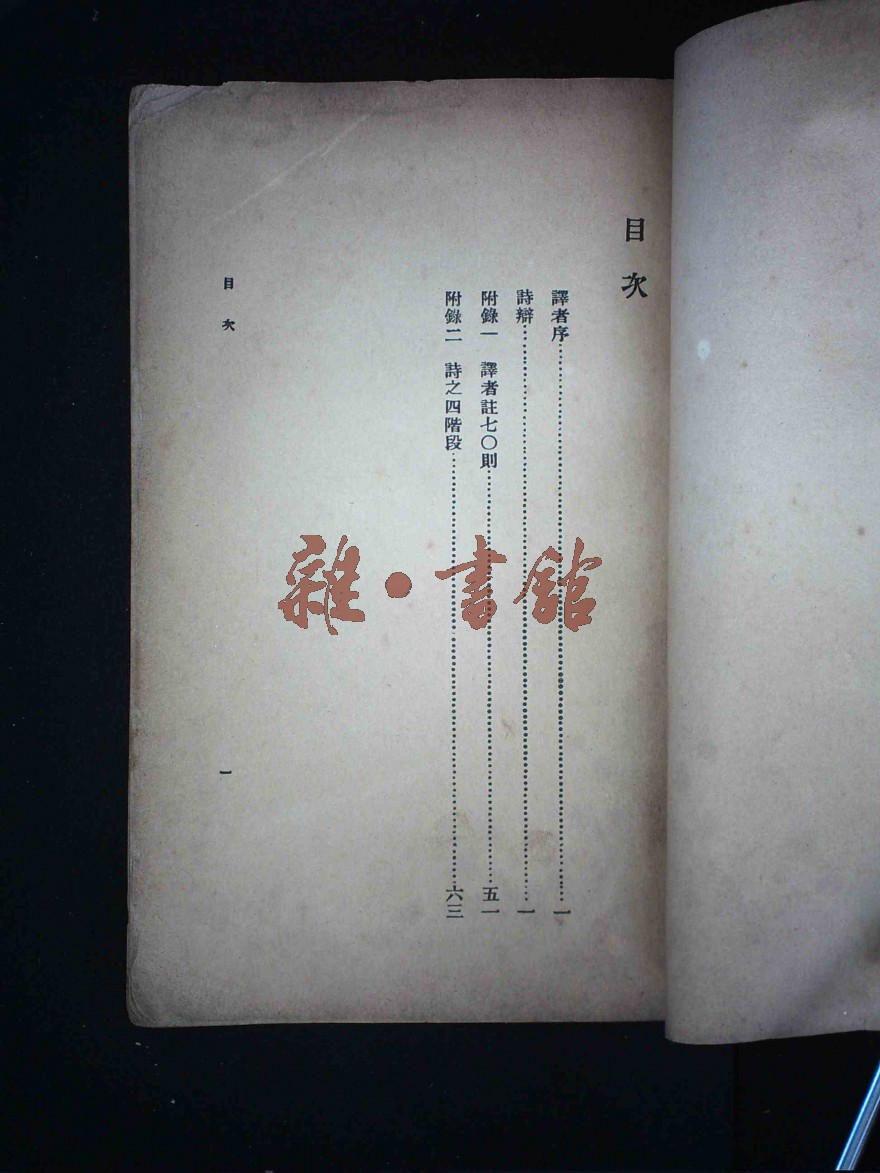 目次
譯者序……一
詩辯……一
附錄一　譯者註七〇則……五一
附錄二　詩之四階段……六三
目次
一
雜·書館